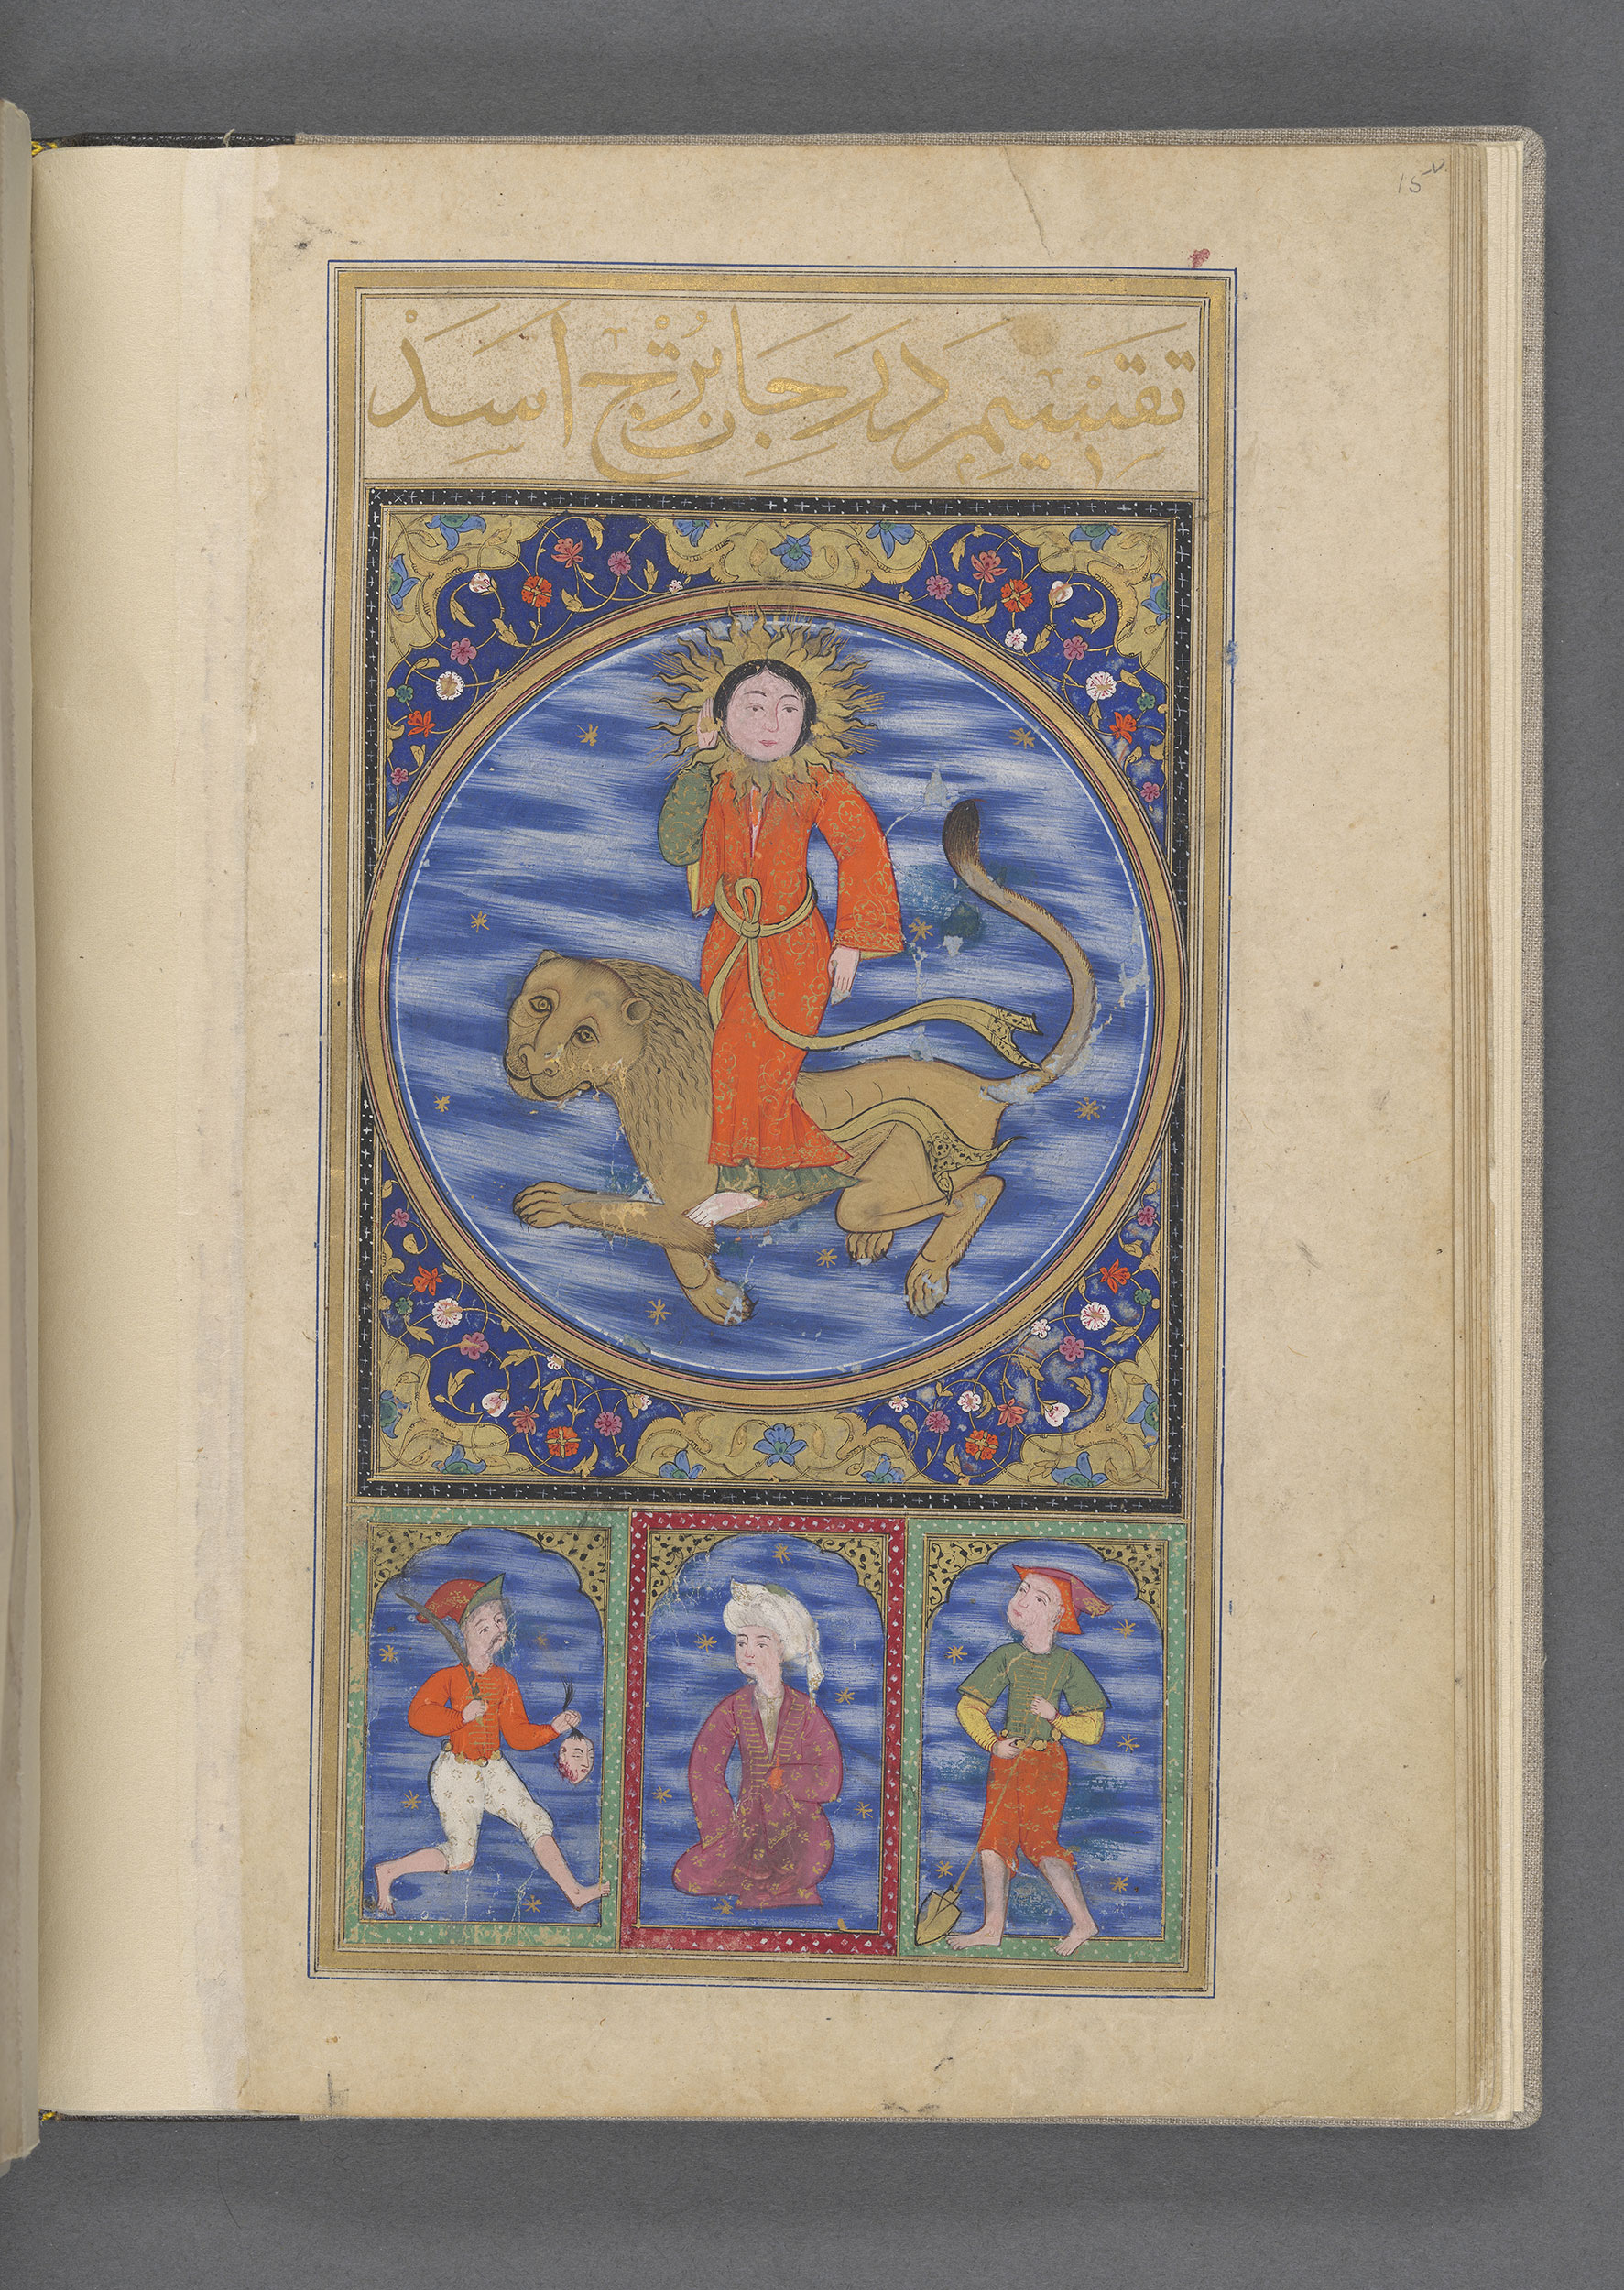 15v
تقسیم درجات برج اسد